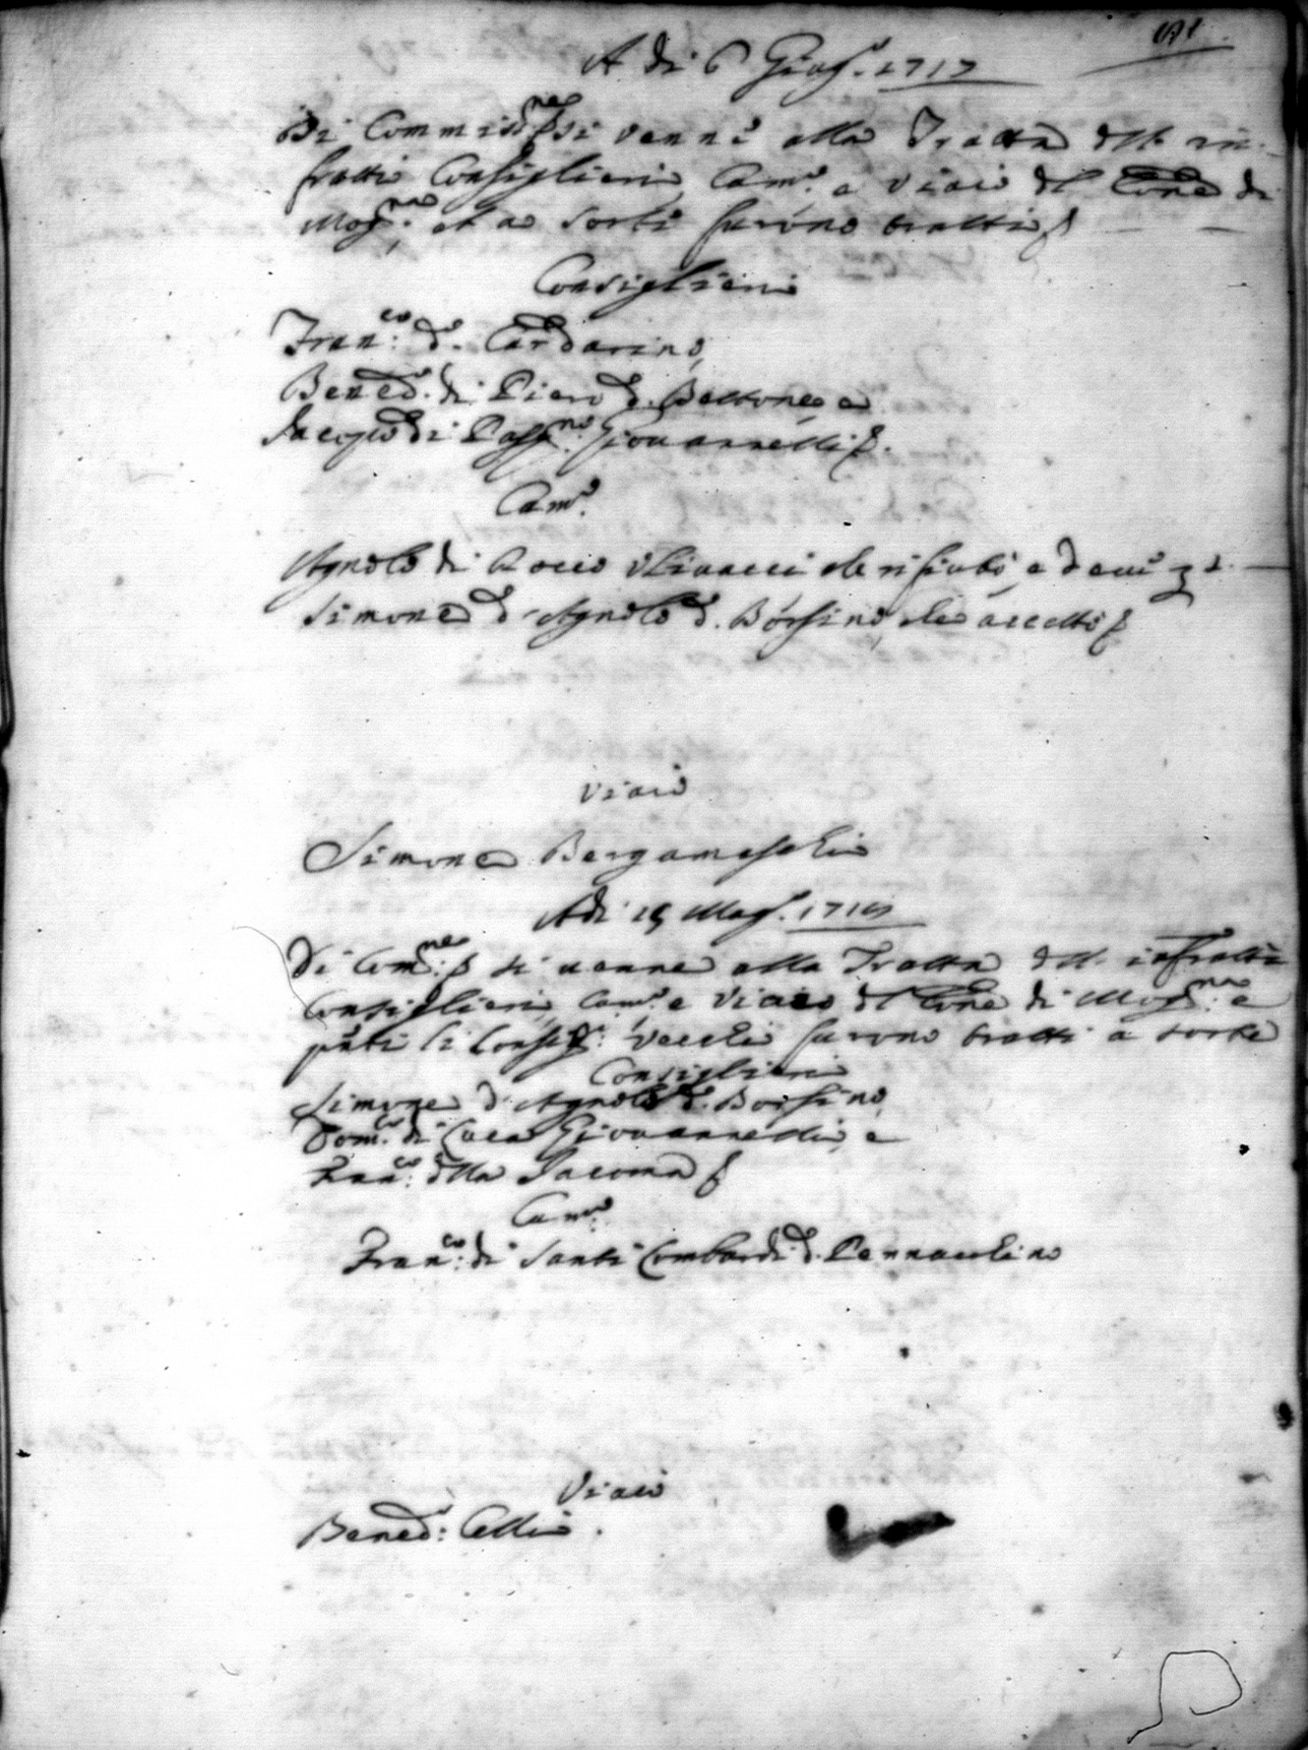 A di 6 Giug. 1717
Di Commiss.ne si venne alla Tratta dell. in-
fratti Consiglieri Cam.o e Viaio del Cone di
Mog.na et a Sorte furono tratti
Consiglieri
Fran.co d. Cardarino,
Bened. di Piero d. Bettone e
Jacopo di Pass.no Giovannelli
Cam.o
Agnolo di Rocco Ulivacci che rifiutò, e
Simone d. Agnolo d. Borsino che accettò
Viaio
Simone Bergameschi
Adi 15 Mag. 1718
Di Com.ne si venne alla Tratta dell. infratti
Consiglieri, Cam.o e Viaio del Cone di Mog.na e
p.nti li Consig.ri Vecchi furono tratti a sorte
Consiglieri
Simone d. Agnolo d. Borsino
Dom.co di Luca Giovannelli, e
Fran.co della Jacoma
Cam.o
Fran.co di Santi Lombardi d. Pennacchino
Viaio
Bened. Celli.